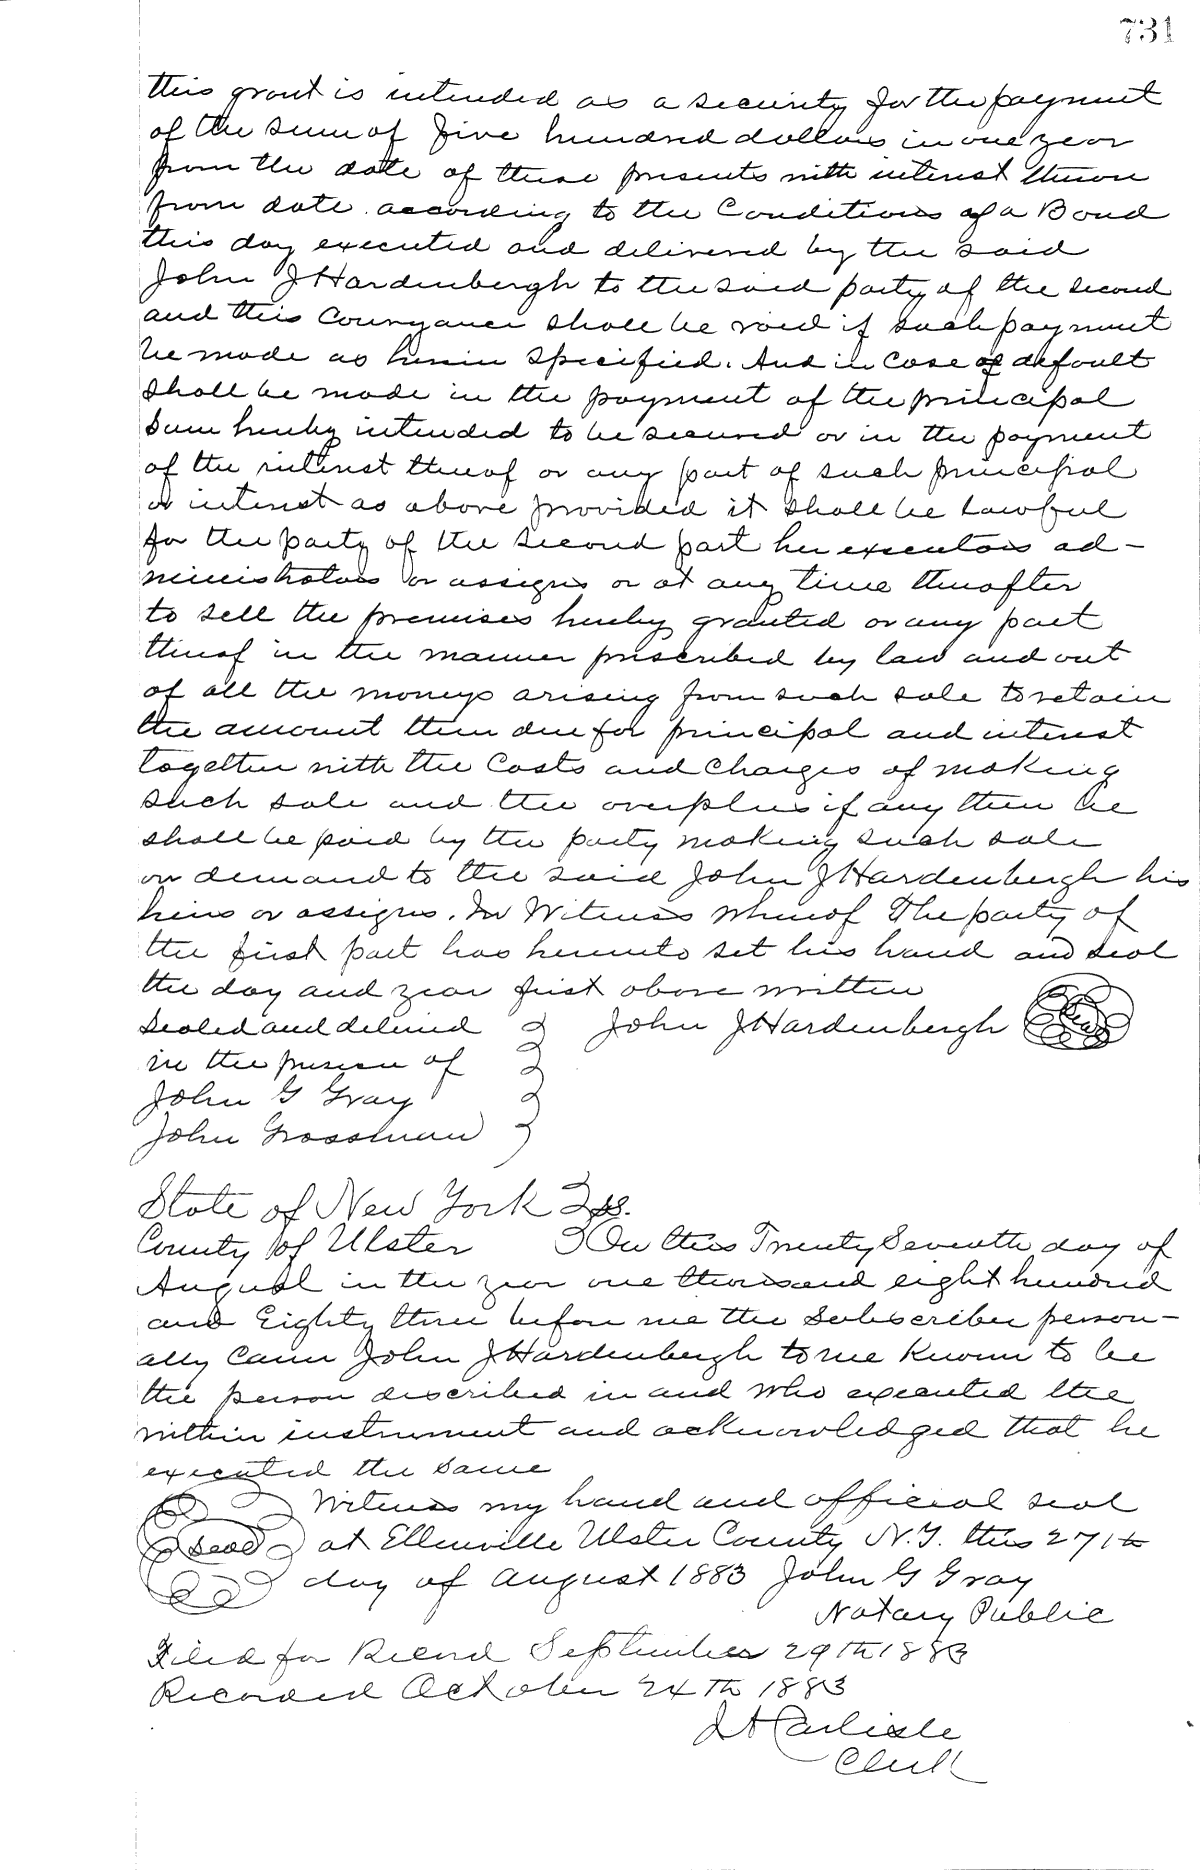 731
this grant is intended as a security for the payment
of the sum of five hundred dollars in one year
from the date of these presents with interest thereon
from date according to the Conditions of a Bond
this day executed and delivered by the said
John J Hardenbergh to the said party of the second
and this Conveyance shall be void if such payment
be made as herein specified. And in Case of default
shall be made in the payment of the principal
Sum hereby intended to be secured or in the payment
of the interest thereof or any part of such principal
or interest as above provided it shall be Lawful
for the party of the second part her executors ad-
ministrators or assigns or at any time thereafter
to sell the premises hereby granted or any part
thereof in the manner prescribed by law and out
of all the moneys arising from such sale to retain
the amount then due for principal and interest
together with the Costs and Charges of making
such sale and the overplus if any there be
shall be paid by the party making such sale
on demand to the said John J Hardenbergh his
heirs or assigns. In Witness whereof The party of
the first part has hereunto set his hand and seal
the day and year first above written
Sealed and delivered John J Hardenbergh Seal
in the presence of
John G Gray
John Grossman
State of New York ss.
County of Ulster On this Twenty Seventh day of
August in the year one thousand eight hundred
and Eighty three before me the Subscriber person-
ally Came John J Hardenbergh to me Known to be
the person described in and who executed the
within instrument and acknowledged that he
executed the same
Witness my hand and official seal
Seal at Ellenville Ulster County N.Y. this 27th
day of August 1883 John G Gray
Notary Public
Filed for Record September 29th 1883
Recorded October 24th 1883
J H Carlisle
Clerk